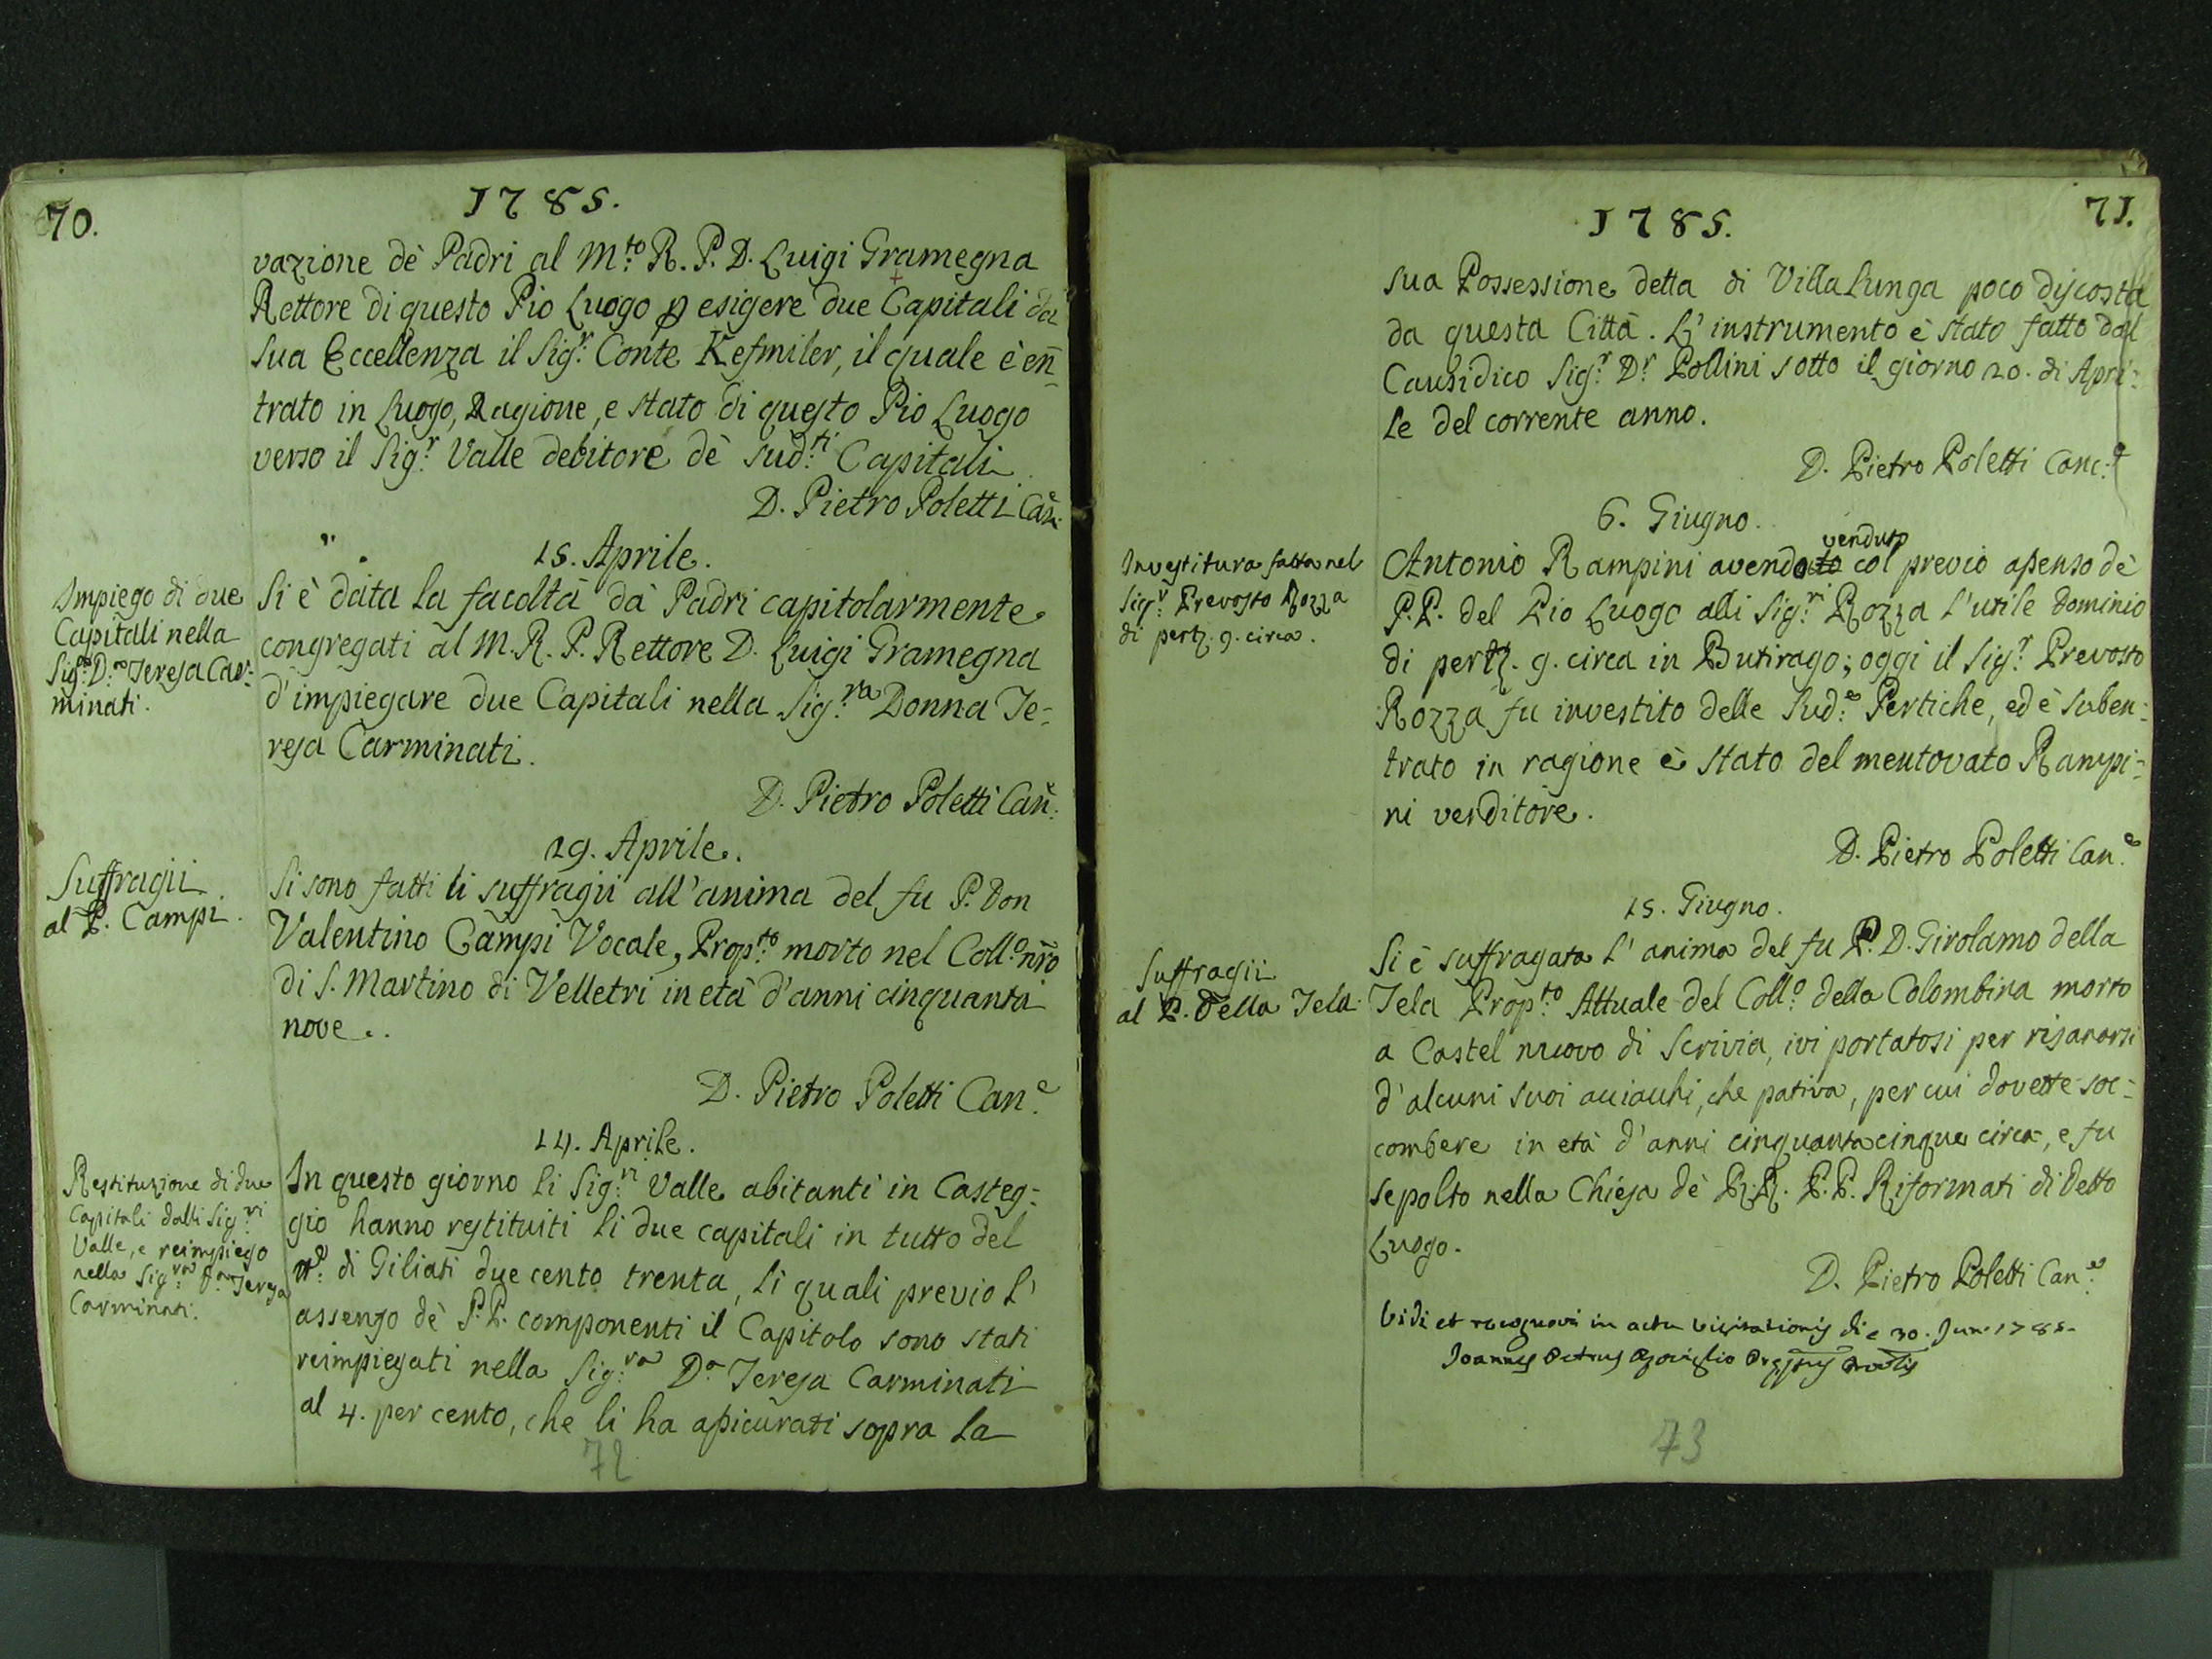 70.
1785.
vazione dè Padri al M.to R. P. D. Luigi Gramegna
Rettore di questo Pio Luogo p esigere due Capitali da
sua Eccellenza il Sig.r Conte Kefmiler, il quale è en̄
trato in Luogo, Ragione, e stato di questo Pio Luogo
verso il Sig.r Valle debitore dè sud.ti Capitali
D. Pietro Poletti Can.e
15. Aprile.
Impiego di due
Capitali nella
Sig.ra D.a Teresa Car:
minati.
Si è data la facoltà dà Padri capitolarmente
congregati al M. R. P. Rettore D. Luigi Gramegna
d'impiegare due Capitali nella Sig.ra Donna Te:
resa Carminati.
D. Pietro Poletti Can.e
29. Aprile.
Suffragii
al P. Campi.
Si sono fatti li suffragii all'anima del fu P. Don
Valentino Campi Vocale, Prop.to morto nel Coll.o nr̄o
di S. Martino di Velletri in età d'anni cinquanta
nove..
D. Pietro Poletti Can.e
14. Aprile.
Restituzione di due
Capitali dalli Sig.ri
Valle, e reimpiego
nella Sig.ra D.a Teresa
Carminati.
In questo giorno li Sig.ri Valle abitanti in Casteg:
gio hanno restituiti li due capitali in tutto del
n.o di Giliati due cento trenta, li quali previo l'
assenso dè P.P. componenti il Capitolo sono stati
reimpiegati nella Sig.ra D.a Teresa Carminati
al 4. per cento, che li ha assicurati sopra la
72
71.
1785.
sua Possessione detta di Villa Lunga poco discosta
da questa Città. L'instrumento è stato fatto dal
Causidico Sig.r D.r Pollini sotto il giorno 20. di Apri:
le del corrente anno.
D. Pietro Poletti Canc.e
6. Giugno.
Investitura fatta nel
Sig.r Prevosto Rozza
di pertz. 9. circa.
venduto
Antonio Rampini avendoto col previo assenso dè
P.P. del Pio Luogo alli Sig.ri Rozza l'utile dominio
di pertz. 9. circa in Butirago; oggi il Sig.r Prevosto
Rozza fu investito delle Sud.e Pertiche, ed è suben:
trato in ragione è stato del mentovato Rampi:
ni venditore.
D. Pietro Poletti Can.e
15. Giugno.
Suffragii
al P. della Tela.
Si è suffragata l'anima del fu P. D. Girolamo della
Tela Prop.to Attuale del Coll.o della Colombina morto
a Castel nuovo di Scrivia, ivi portatosi per risanarsi
d'alcuni suoi acciachi, che pativa, per cui dovette soc:
combere in età d'anni cinquantacinque circa, e fu
sepolto nella Chiesa dè R.R. P.P. Riformati di detto
Luogo.
D. Pietro Poletti Can.e
Vidi et recognovi in actu visitationis die 30. Jun. 1785.
Joannes Petrus
73